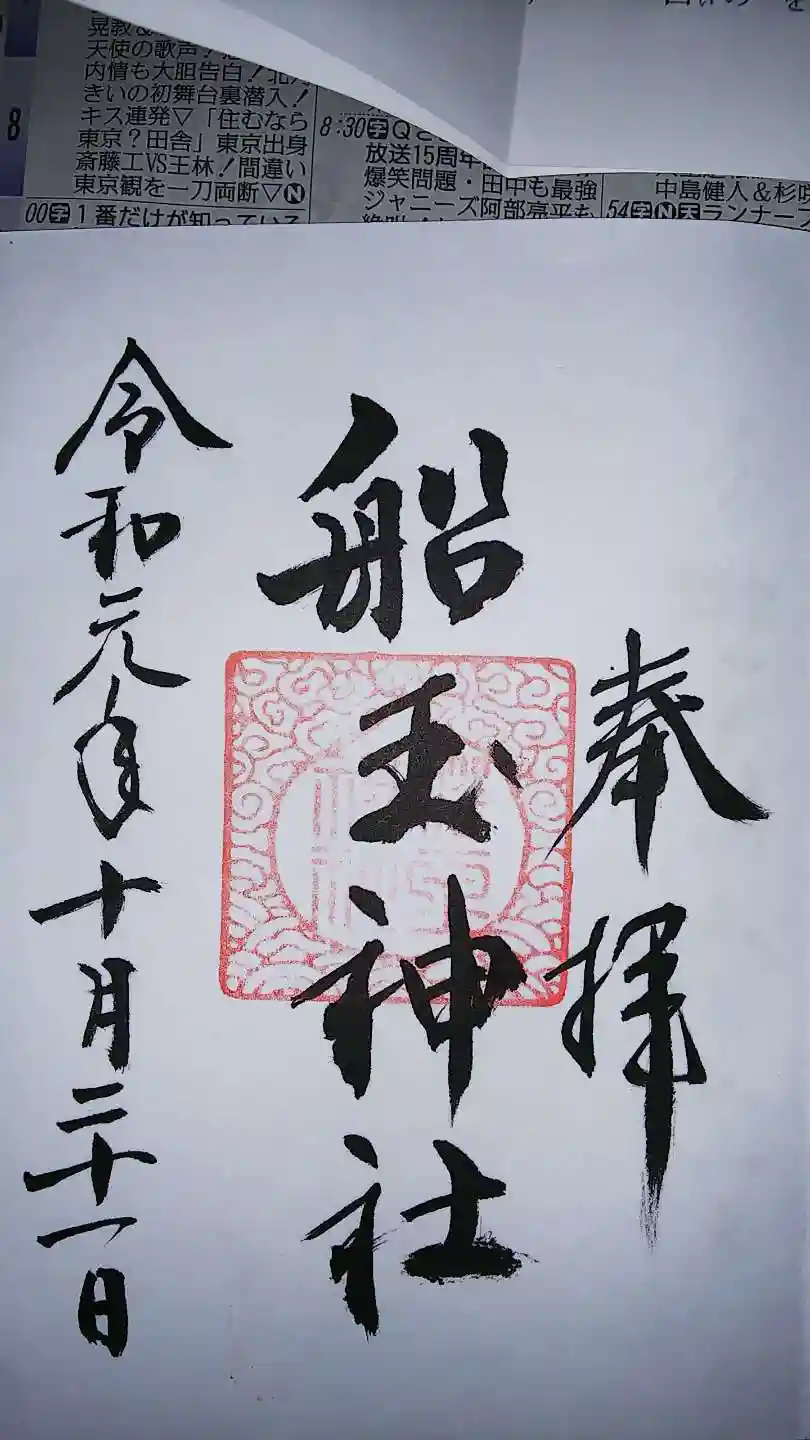 天使の歌声
内情も大胆告白!
きいの初舞台裏潜入!
キス連発▽「住むなら
東京?田舎」東京出身
斎藤工VS王林!間違い
東京観を一刀両断▽N
00字1番だけが知っている
8
8:30字Qさ
放送15周年
爆笑問題・田中も最強
ジャニーズ阿部亮平も
中島健人&杉咲
54字N天ランナーズ
奉拝
船玉神社
令和元年十月二十一日